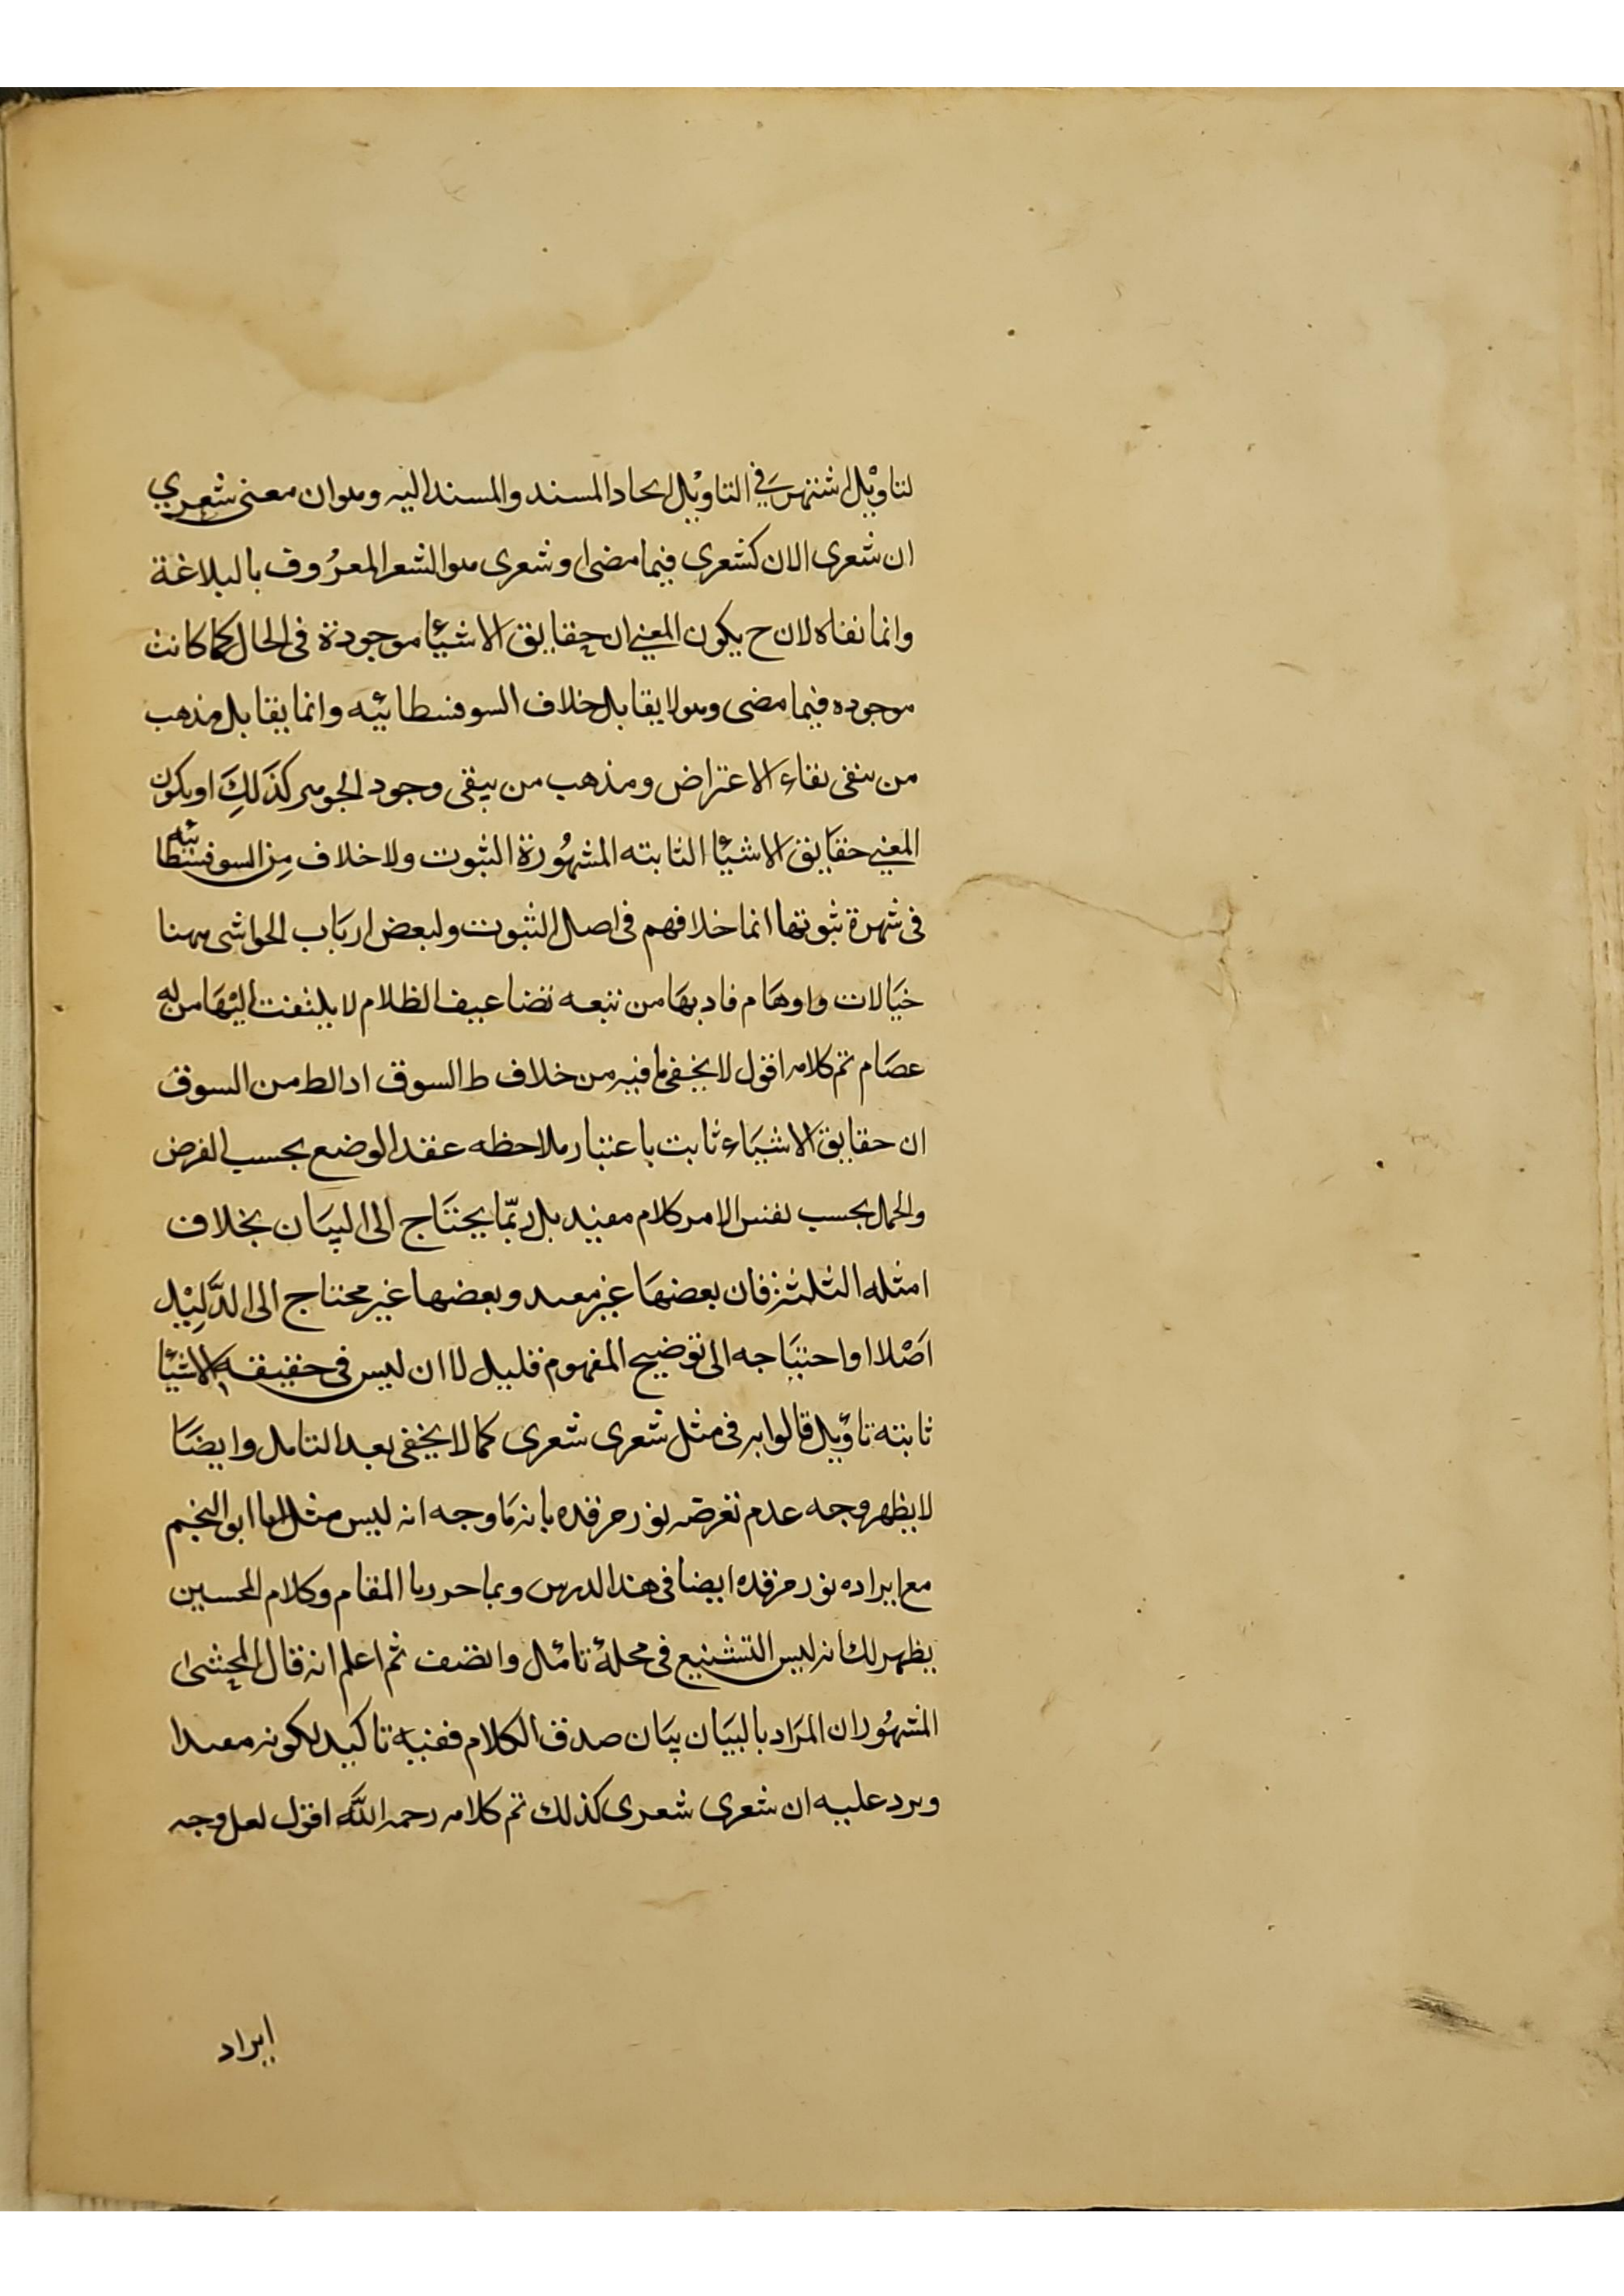 لتاويل اشتهر في التاويل اتحاد المسند والمسند اليه وهو ان معنى شعري
ان شعرى الان كشعرى فيما مضى او شعرى هو الشعر المعروف بالبلاغة
وانما نفاه لان ح يكون المعنى ان حقايق الاشيئا موجودة فى الحال كما كانت
موجوده فيما مضى وهو لا يقابل خلاف السوفسطائيه وانما يقابل مذهب
من ينفى بقاء الاعراض ومذهب من ينفى وجود الجوهر كذلك او يكون
المعنى حقايق الاشيئا الثابته المشهورة الثبوت ولا خلاف من السوفسطائيه
فى شهرة ثبوتها انما خلافهم فى اصل الثبوت ولبعض ارباب الحواشى ههنا
خيالات واوهام قاد بها من تبعه تضاعيف الظلام لا يلتفت اليها من له
عصام تم كلامه اقول لا يخفى ما فيه من خلاف ط السوق اد الط من السوق
ان حقايق الاشياء ثابت باعتبار ملاحظه عقد الوضع بحسب الفرض
والحمل بحسب نفس الامر كلام مفيد بل ربما يحتاج الى البيان بخلاف
امثله الثلثة فان بعضها غير مفيد وبعضها غير محتاج الى الدليل
اصلا او احتياجه الى توضيح المفهوم قليل لا ان ليس فى حقيقة الاشيئا
ثابته تاويل قالوا به فى مثل شعرى شعرى كما لا يخفى بعد التامل وايضا
لا يظهر وجه عدم تعرضه نور مرقده بانه ما وجه انه ليس مثل انا ابو النجم
مع ايراده نور مرقده ايضا فى هذا الدرس وبما حررنا المقام وكلام المحسين
يظهر لك انه ليس التشنيع فى محله تامل وانصف ثم اعلم انه قال المحشى
المشهور ان المراد بالبيان بيان صدق الكلام ففيه تاكيد لكونه مفيدا
ويرد عليه ان شعرى شعرى كذلك تم كلامه رحمه الله اقول لعل وجه
ايراد